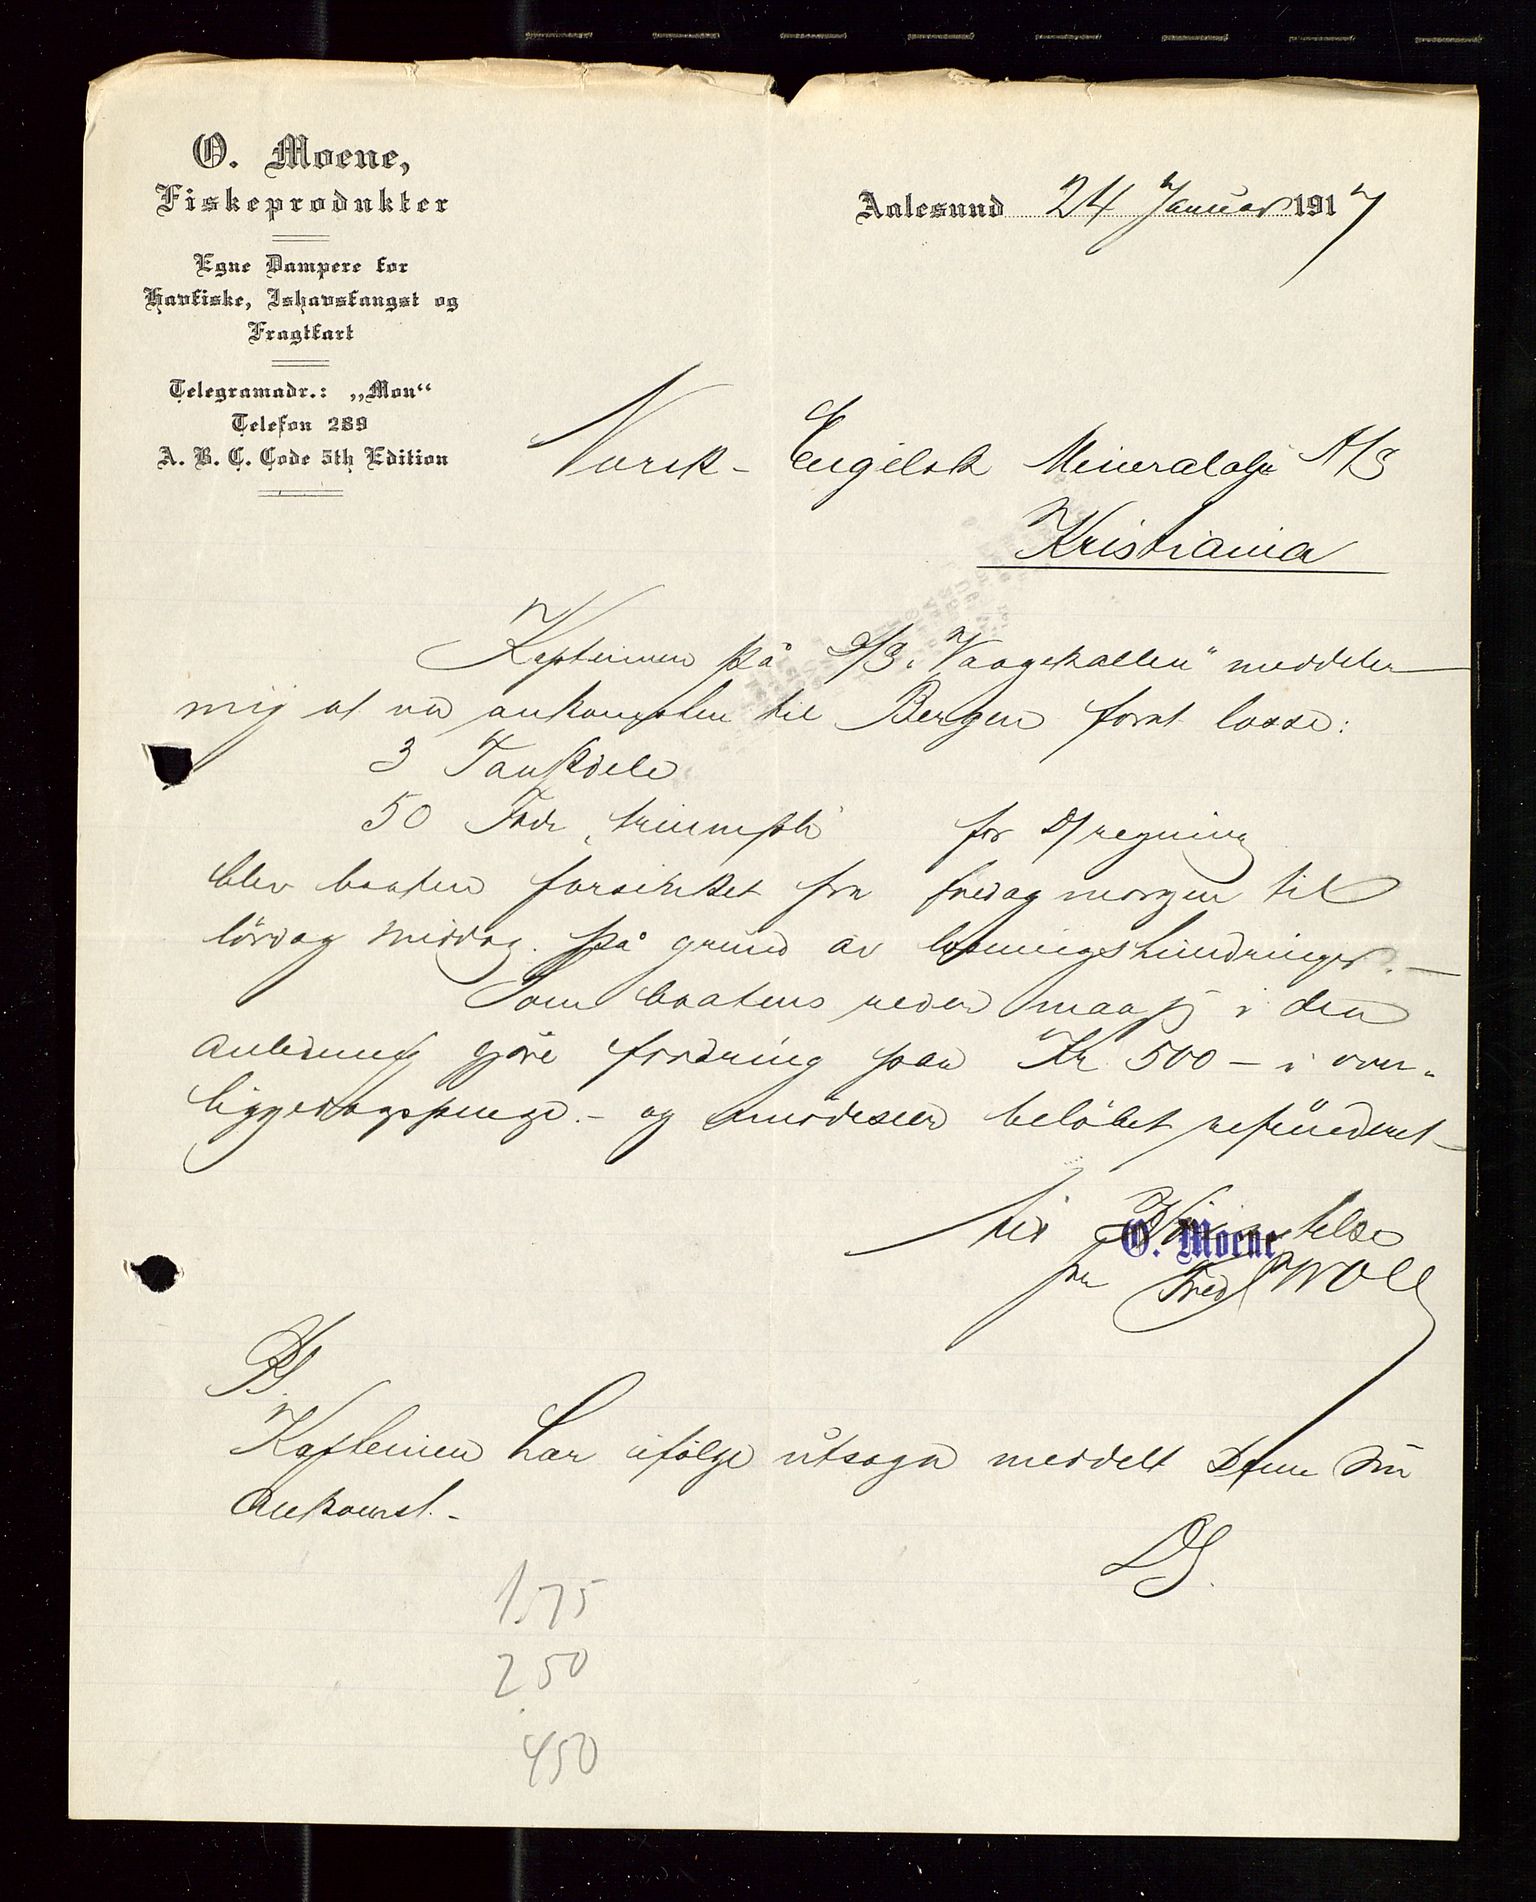 O. Moene,
Fiskeprodukter
Egne Dampere for
Havfiske, Ishavsfangst og
Fragtfart
Telegramadr.: „Mon“
Telefon 289
A. B. C. Code 5th Edition
Aalesund 24 Januar 1917
Norsk-Engelsk Mineralolje A/S
Kristiania
Kapteinen på D/S „Vaagekallen" meddeler
mig at ved ankomsten til Bergen forat losse:
3 Tankdele
50 Fade for D/ regning
blev baaten forsinket fra fredag morgen til
lördag middag. på grund av losningshindringer. —
Som baatens reder maa jeg i den
anledning gjöre fordring paa Kr 500 — i over-
liggedagspenge. - og imödeseer belöbet refunderet —
O. Moene
pr Fredl Woll
PS.
Kapteinen har ifölge utsagn meddelt Dem sin
Ankomst. -
DS.
1.75
2.50
450